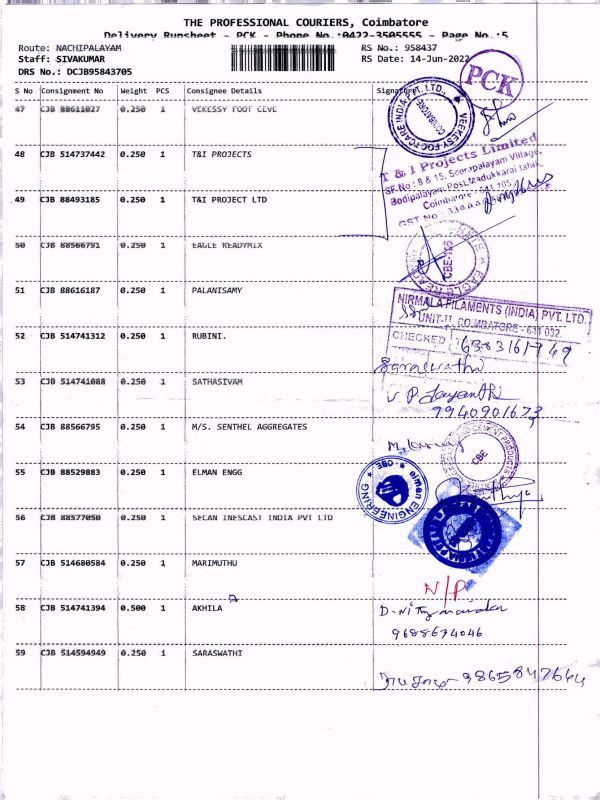 THE PROFESSIONAL COURIERS, Coimbatore
Delivery Runsheet - PCK - Phone No.:0422-3505555 - Page No.:5
Route: NACHIPALAYAM RS No.: 958437
Staff: SIVAKUMAR RS Date: 14-Jun-2022
DRS No.: DCJB95843705
PCK
S No Consignment No Weight PCS Consignee Details Signature
47 CJB 88611027 0.250 1
VEEKESSY FOOTCARE INDIA PVT. LTD.
COIMBATORE
48 CJB 514737442 0.250 1 T&I PROJECTS
T & I Projects Limited
SF No : 8 & 15, Seerapalayam Village,
Bodipalayam Post, Madukkarai taluk,
Coimbatore - 641 105
GST No :
49 CJB 88493185 0.250 1 T&I PROJECT LTD
50 CJB 88566791 0.250 1 EAGLE READYMIX
51 CJB 88616187 0.250 1 PALANISAMY
NIRMALA FILAMENTS (INDIA) PVT. LTD.
UNIT-II, COIMBATORE - 641 032.
CHECKED
52 CJB 514741312 0.250 1 RUBINI.
6383161749
Saraswathi
53 CJB 514741088 0.250 1 SATHASIVAM
V. P. JayanthI
7940901673
54 CJB 88566795 0.250 1 M/S. SENTHEL AGGREGATES
CBE
55 CJB 88529883 0.250 1 ELMAN ENGG
elman ENGINEERING
CBE
56 CJB 88577050 0.250 1 SECAN INESCAST INDIA PVT LTD
57 CJB 514680584 0.250 1 MARIMUTHU
N/P
58 CJB 514741394 0.500 1 AKHILA
9688674046
59 CJB 514594949 0.250 1 SARASWATHI
9865847664